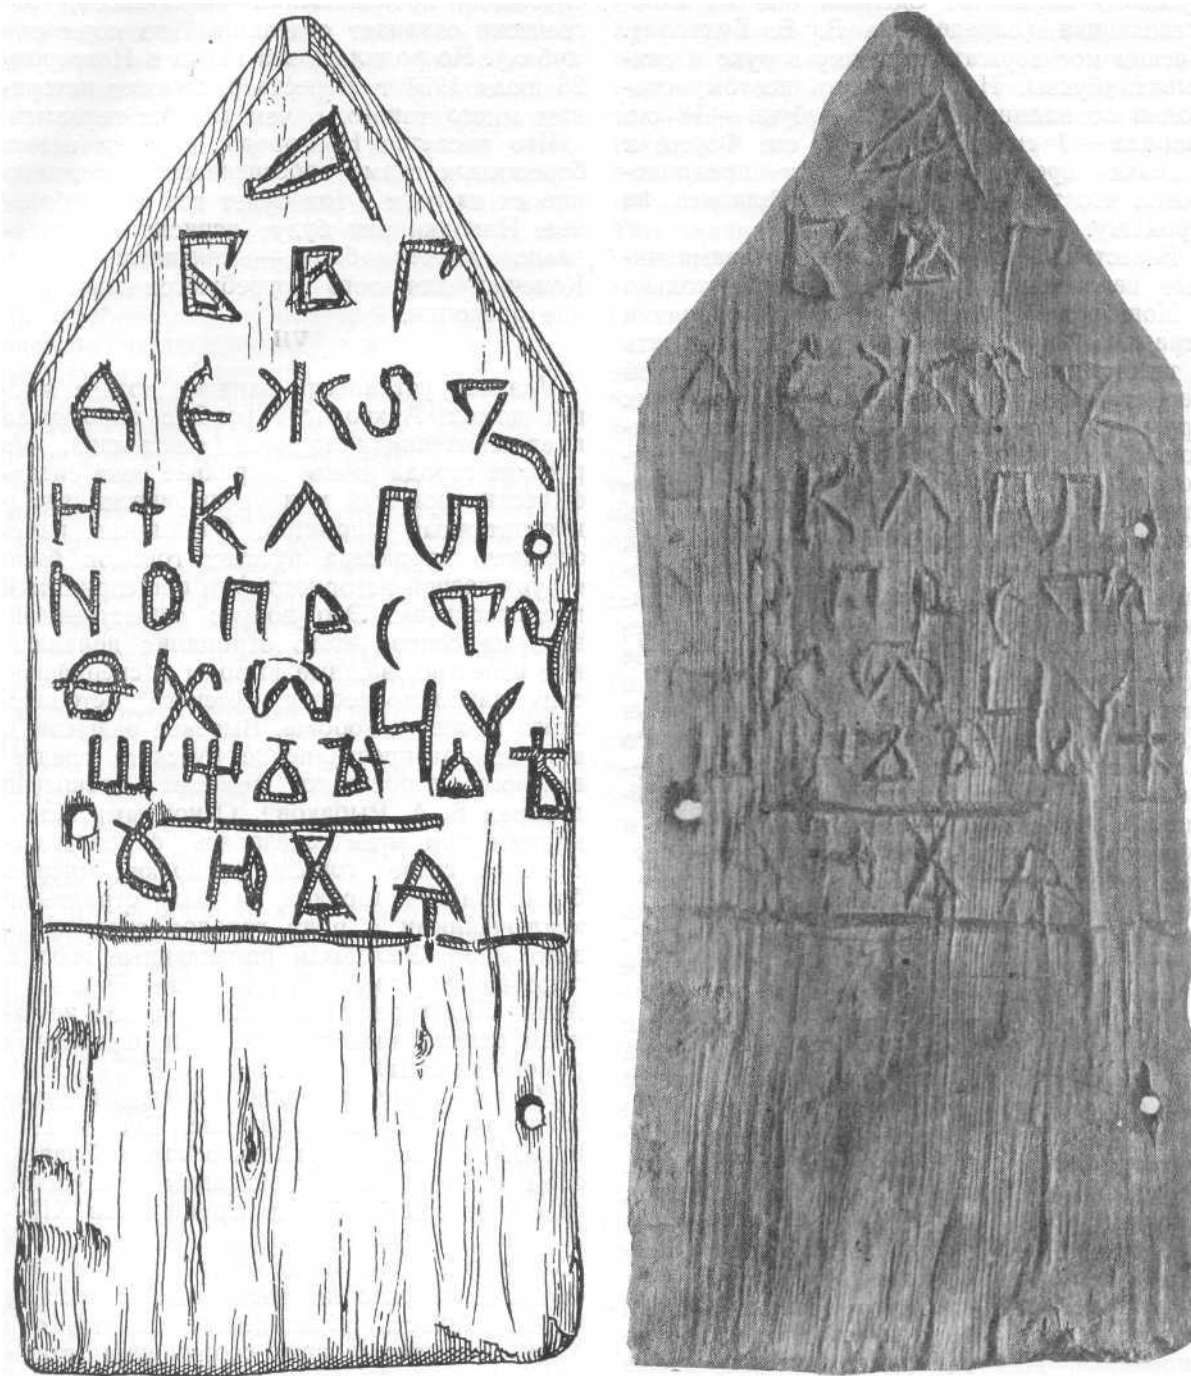 А
Б В Г
Д Е Ж Ѕ З
Н І К Л М
N О П Р С Т Ч
Ѳ Х Ѡ Ц Ч
Ш Щ Ъ Ы Ь Ѣ
Ꙋ Ю Ѫ Ѧ